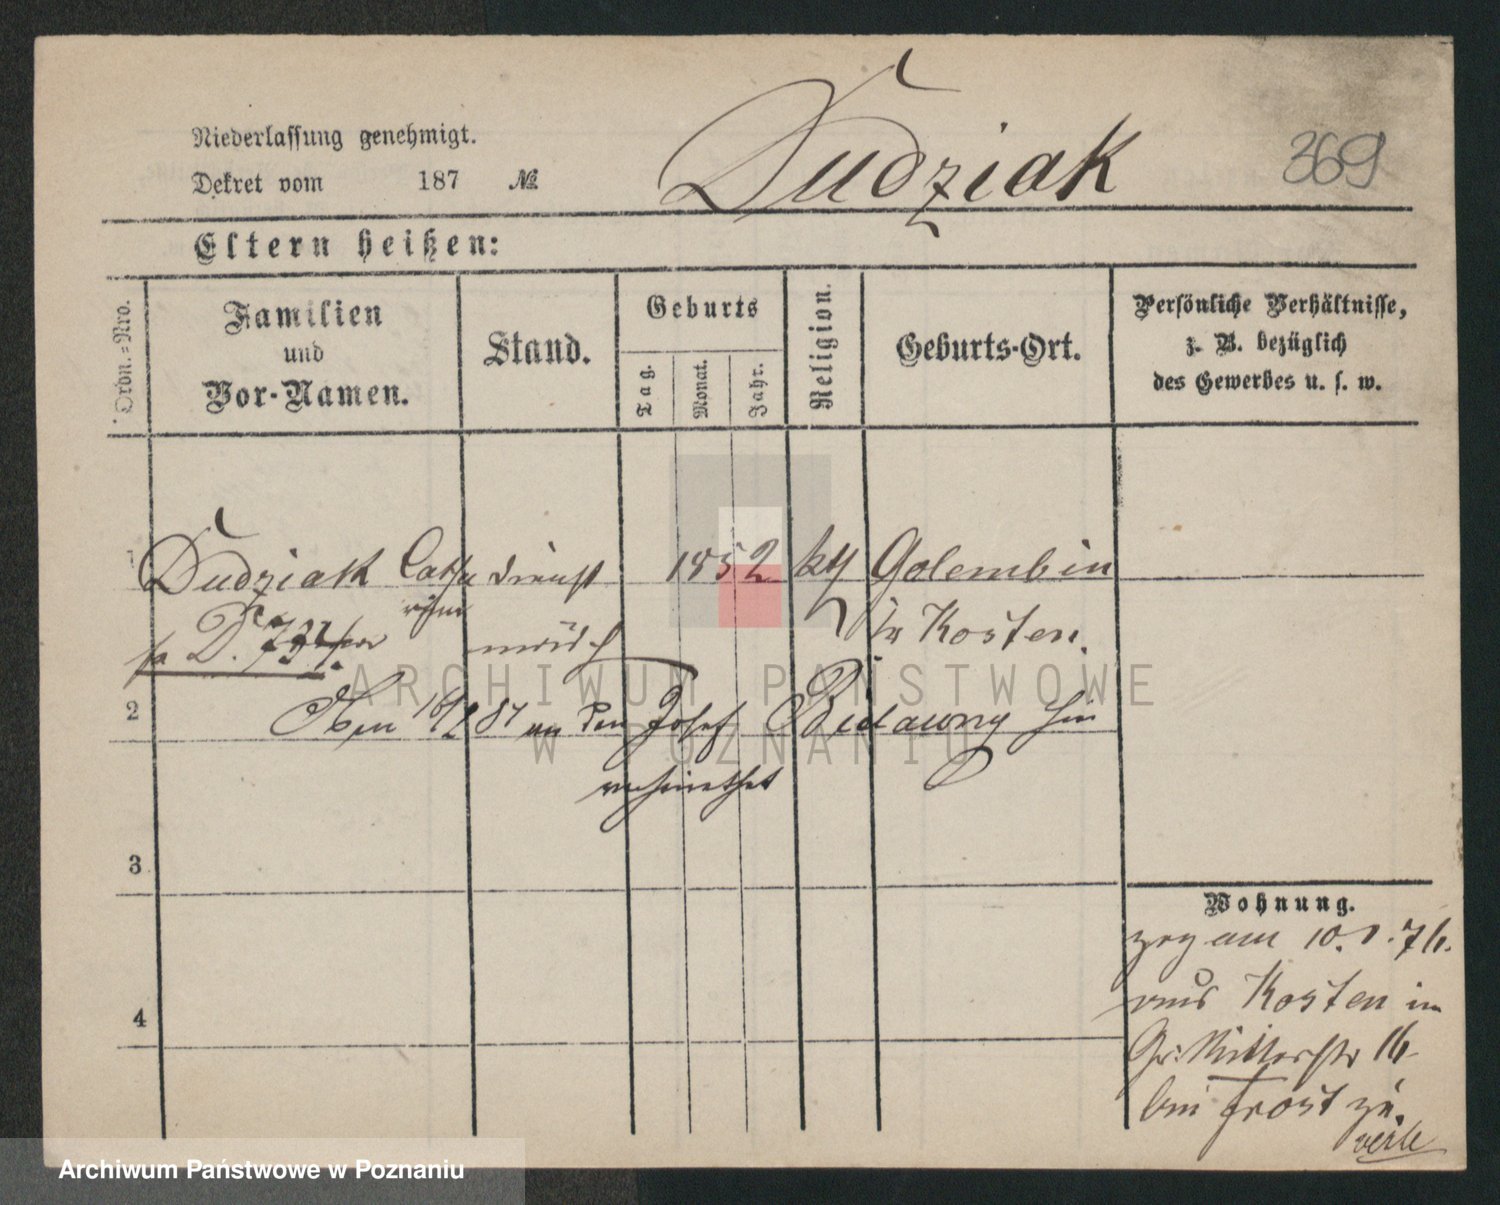 Niederlassung genehmigt.
Dekret vom 187 №
Dudziak
369
Eltern heißen:
Ordn.=Nro.
Familien
und
Vor-Namen.
Stand.
Geburts
Tag.
Monat.
Jahr.
Religion.
Geburts-Ort.
Persönliche Verhältnisse,
z. B. bezüglich
des Gewerbes u. s. w.
1 Dudziak Catha dienst 1852 kth Golembin
rina
mädch Kr Kosten.
2
den Josef hier
verheirathet
3
4
Wohnung.
zog am 10. 7b.
aus Kosten in
Gr: Ritterstr 16
bei Frost zu.
ARCHIWUM PAŃSTWOWE
W POZNANIU
Archiwum Państwowe w Poznaniu